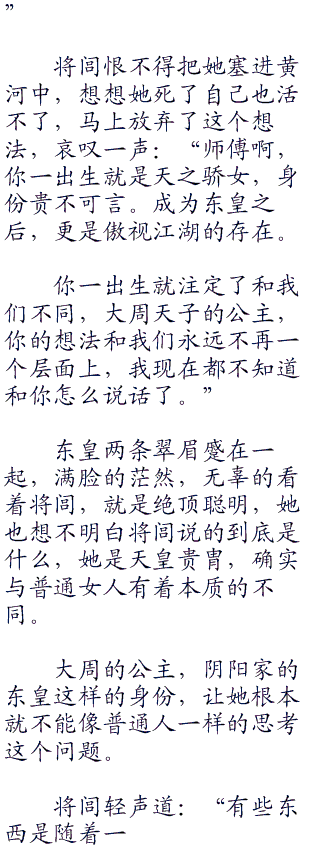 ”
将闾恨不得把她塞进黄
河中，想想她死了自己也活
不了，马上放弃了这个想
法，哀叹一声：“师傅啊，
你一出生就是天之骄女，身
份贵不可言。成为东皇之
后，更是傲视江湖的存在。
你一出生就注定了和我
们不同，大周天子的公主，
你的想法和我们永远不再一
个层面上，我现在都不知道
和你怎么说话了。”
东皇两条翠眉蹙在一
起，满脸的茫然，无辜的看
着将闾，就是绝顶聪明，她
也想不明白将闾说的到底是
什么，她是天皇贵胄，确实
与普通女人有着本质的不
同。
大周的公主，阴阳家的
东皇这样的身份，让她根本
就不能像普通人一样的思考
这个问题。
将闾轻声道：“有些东
西是随着一